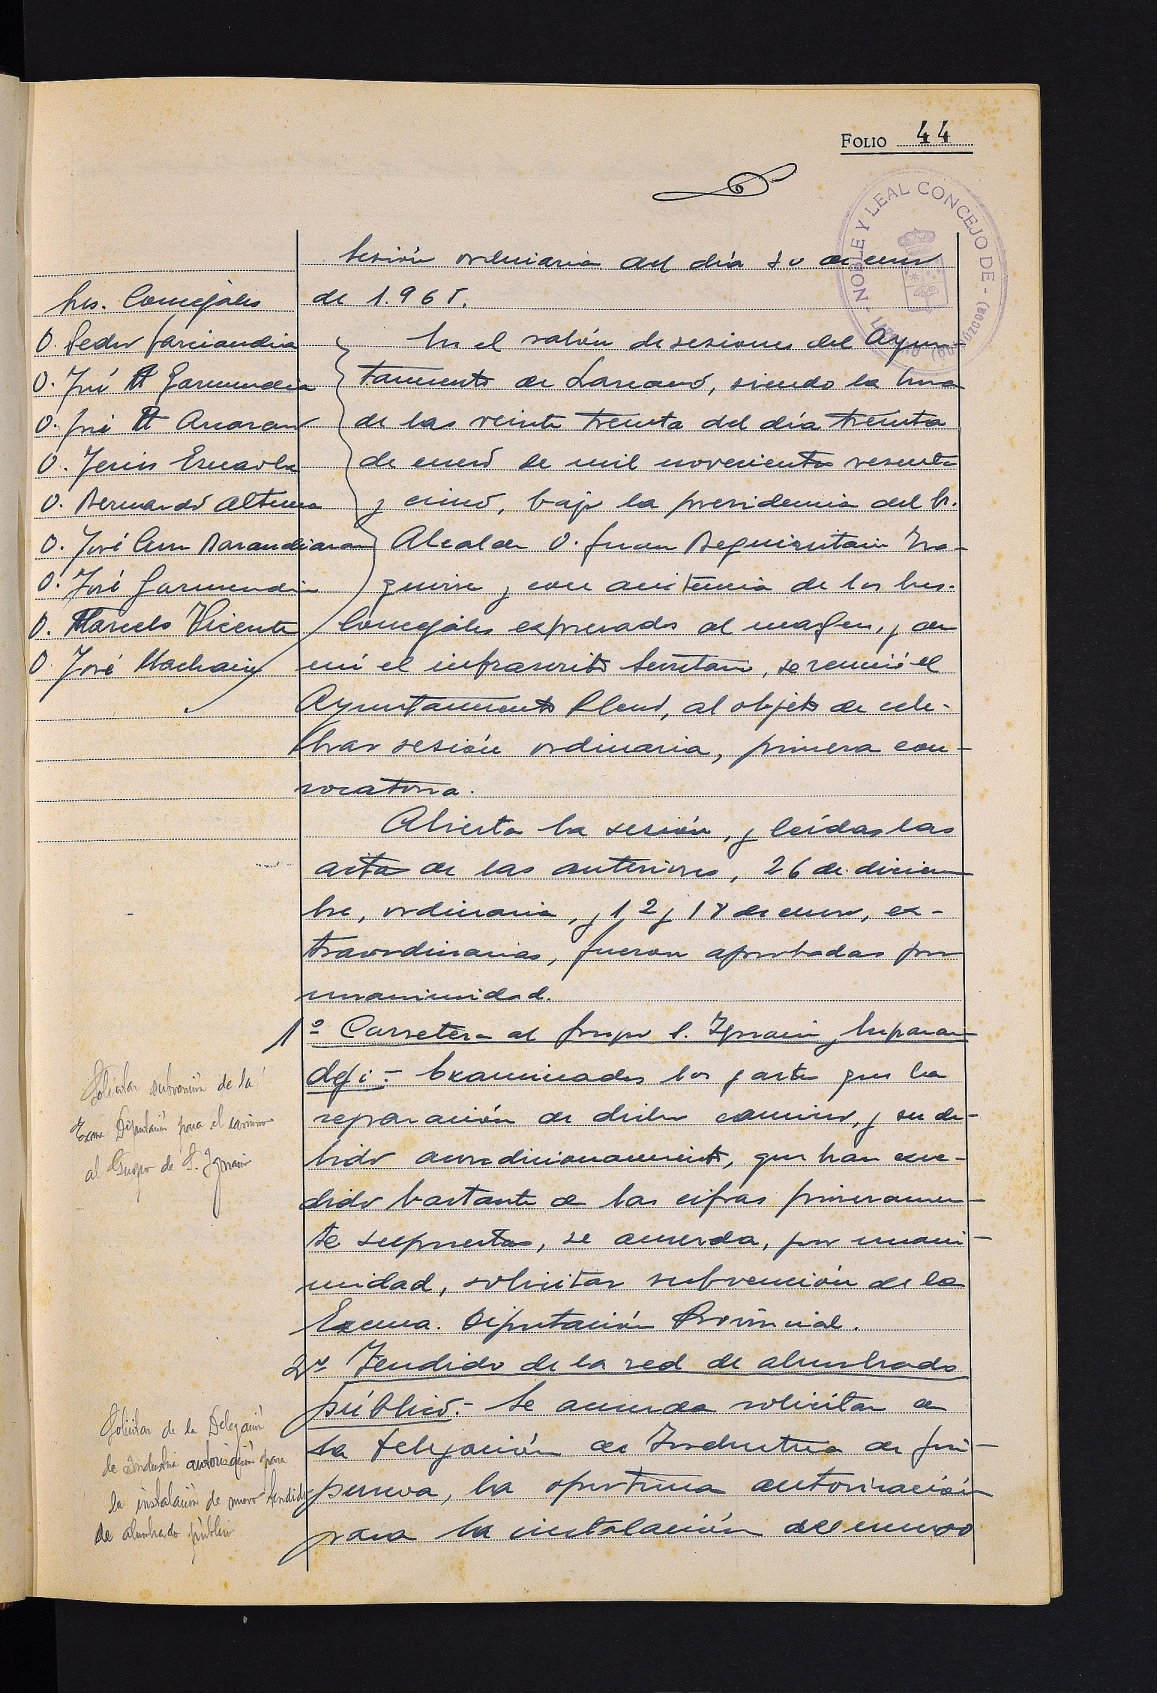 FOLIO 44
NOBLE Y LEAL CONCEJO DE - LAZCANO (Guipúzcoa)
Sesión ordinaria del día 30 de enero
de 1.965.
Sres. Concejales
D. Pedro Garciandia
D. José Mª Garmendia
D. José Mª
D. Jesús
D. Bernardo Altuna
D. José Barandiaran
D. José Garmendia
D. Marcelo Vicente
D. José
En el salón de sesiones del Ayun-
tamiento de Lazcano, siendo la hora
de las veinte treinta del día treinta
de enero de mil novecientos sesenta
y cinco, bajo la presidencia del Sr.
Alcalde D. Juan Beguiristain
y con asistencia de los Sres.
Concejales expresados al margen, y de
mí el infrascrito Secretario, se reunió el
Ayuntamiento Pleno, al objeto de cele-
brar sesión ordinaria, primera con-
vocatoria.
Abierta la sesión, y leídas las
actas de las anteriores, 26 de diciem
bre, ordinaria, y 12 y 18 de enero, ex-
traordinarias, fueron aprobadas por
unanimidad.
1º Carretera al grupo S. Ignacio
Examinados los gastos que la
reparación de dicho camino, y su de-
bido acondicionamiento, que han exce-
dido bastante de las cifras primeramen-
te supuestas, se acuerda, por unani-
midad, solicitar subvención de la
Excma. Diputación Provincial.
2º. Tendido de la red de alumbrado
público.- Se acuerda solicitar de
la Delegación de Industria de Gui-
puzcoa, la oportuna autorización
para la instalación del nuevo
Solicitar subvención de la
Excma Diputación para el camino
al Grupo de S. Ignacio
Solicitar de la Delegación
de Industria autorización para
la instalación de nuevo tendido
de alumbrado público